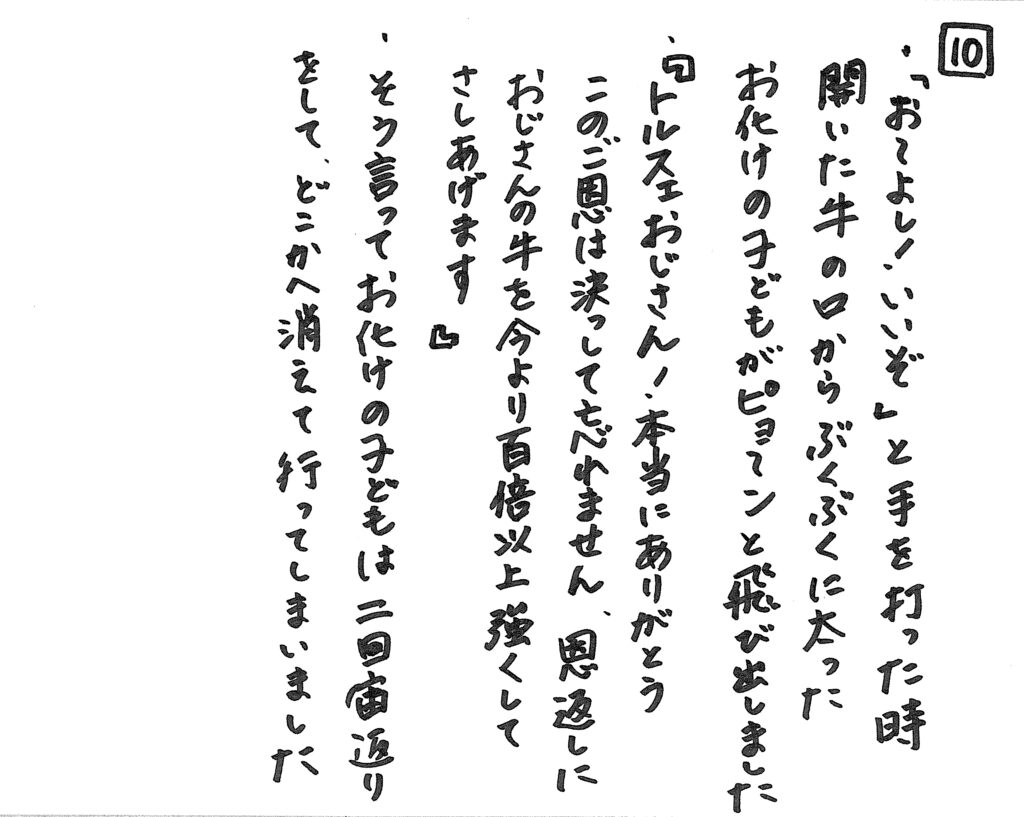 10
・「おてよし！いいぞ」と手を打った時
開いた牛の口からぶくぶくに太った
お化けの子どもがピョンてンと飛び出しました
・『トルスエおじさん！本当にありがとう
このご恩は決っして忘れません、恩返しに
おじさんの牛を今より百倍以上強くして
さしあげます』
・そう言ってお化けの子どもは二回宙返り
をして、どこかへ消えて行ってしまいました